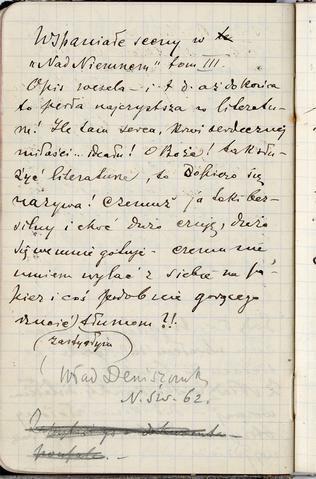 Wspaniałe sceny w te
"Nad Niemnem" tom III.
Opis wesela - i t. d. aż do końca
to perła najczystsza w literatu-
rze! Ile tam serca, krwi serdecznej
miłości.. ideału! O Boże! tak słu-
żyć literaturze, to dopiero się
nazywa! Czemuż ja taki bez-
silny i choć dużo czuję, dużo
się we mnie gotuje - czemu nie
umiem wylać z siebie na pa-
pier i coś podobnie gorącego
rzucić tłumom?!.
(zastygłym)
Wład Deniszczuk
N. Św. 62.